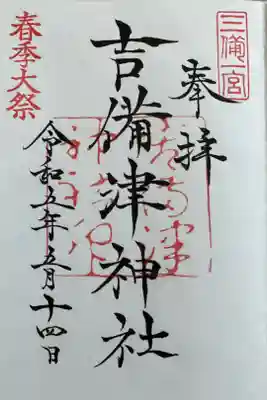 三備一宮
奉拝
吉備津神社
春季大祭
令和五年五月十四日